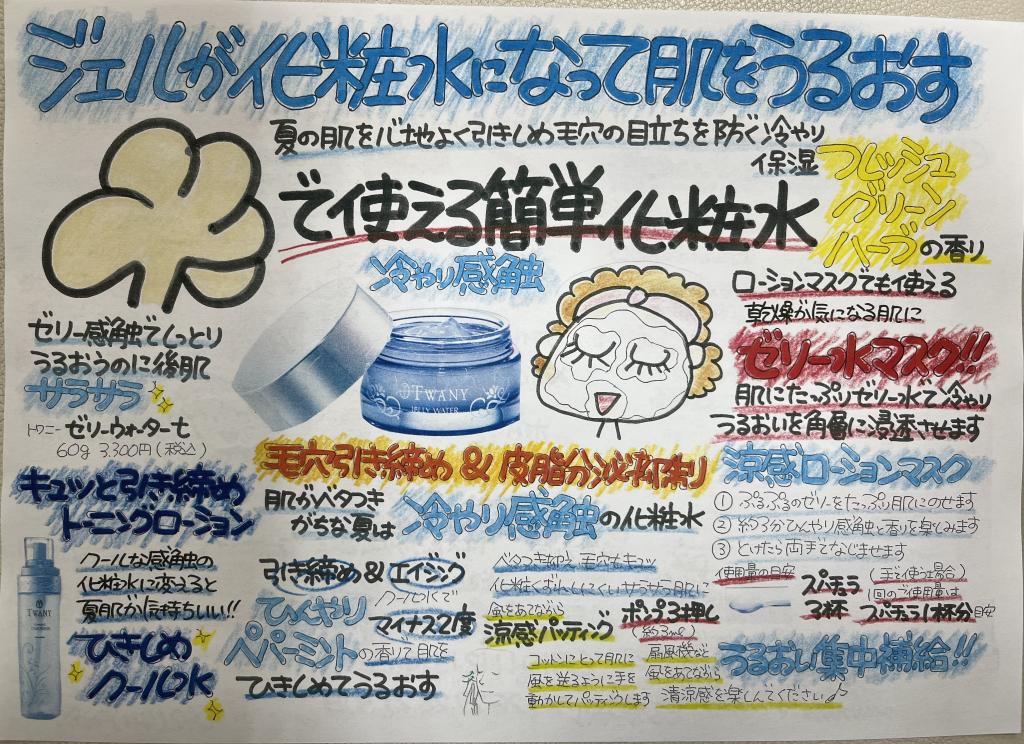 ジェルが化粧水になって肌をうるおす
夏の肌を心地よく引きしめ毛穴の目立ちを防ぐ冷やり
保湿
フレッシュ
グリーン
ハーブの香り
で使える簡単化粧水
冷やり感触
ゼリー感触でしっとり
うるおうのに後肌
サラサラ
トワニーゼリーウォーターt
60g 3.300円(税込)
TWANY
JELLY WATER
ローションマスクでも使える
乾燥が気になる肌に
ゼリー水マスク!!
肌にたっぷりゼリー水で冷やり
うるおいを角層に浸透させます
涼感ローションマスク
① ぷるぷるのゼリーをたっぷり肌にのせます
② 約3分ひんやり感触と香りを楽しみます
③ とけたら両手でなじませます
使用量の目安
スパチュラ
3杯
(手で使う場合)
1回のご使用量は
スパチュラ1杯分目安
うるおい集中補給!!
毛穴引き締め & 皮脂分泌抑制
肌がベタつき
がちな夏は
冷やり感触の化粧水
キュッと引き締め
トーニングローション
クールな感触の
化粧水に変えると
夏肌が気持ちいい!!
ひきしめ
クールOK
TWANY
引き締め&エイジング
クールOKで
ひんやり
マイナス2度
ペパーミントの香りで肌を
ひきしめてうるおす
ベタつき抑え 毛穴もキュッ
化粧くずれしにくいサラサラ肌に
風をあてながら
涼感パッティング
ポンプ3押し
(約3ml)
コットンにとって肌に
風を送るように手を
動かしてパッティングします
扇風機など
風をあてながら
清涼感を楽しんでください♪